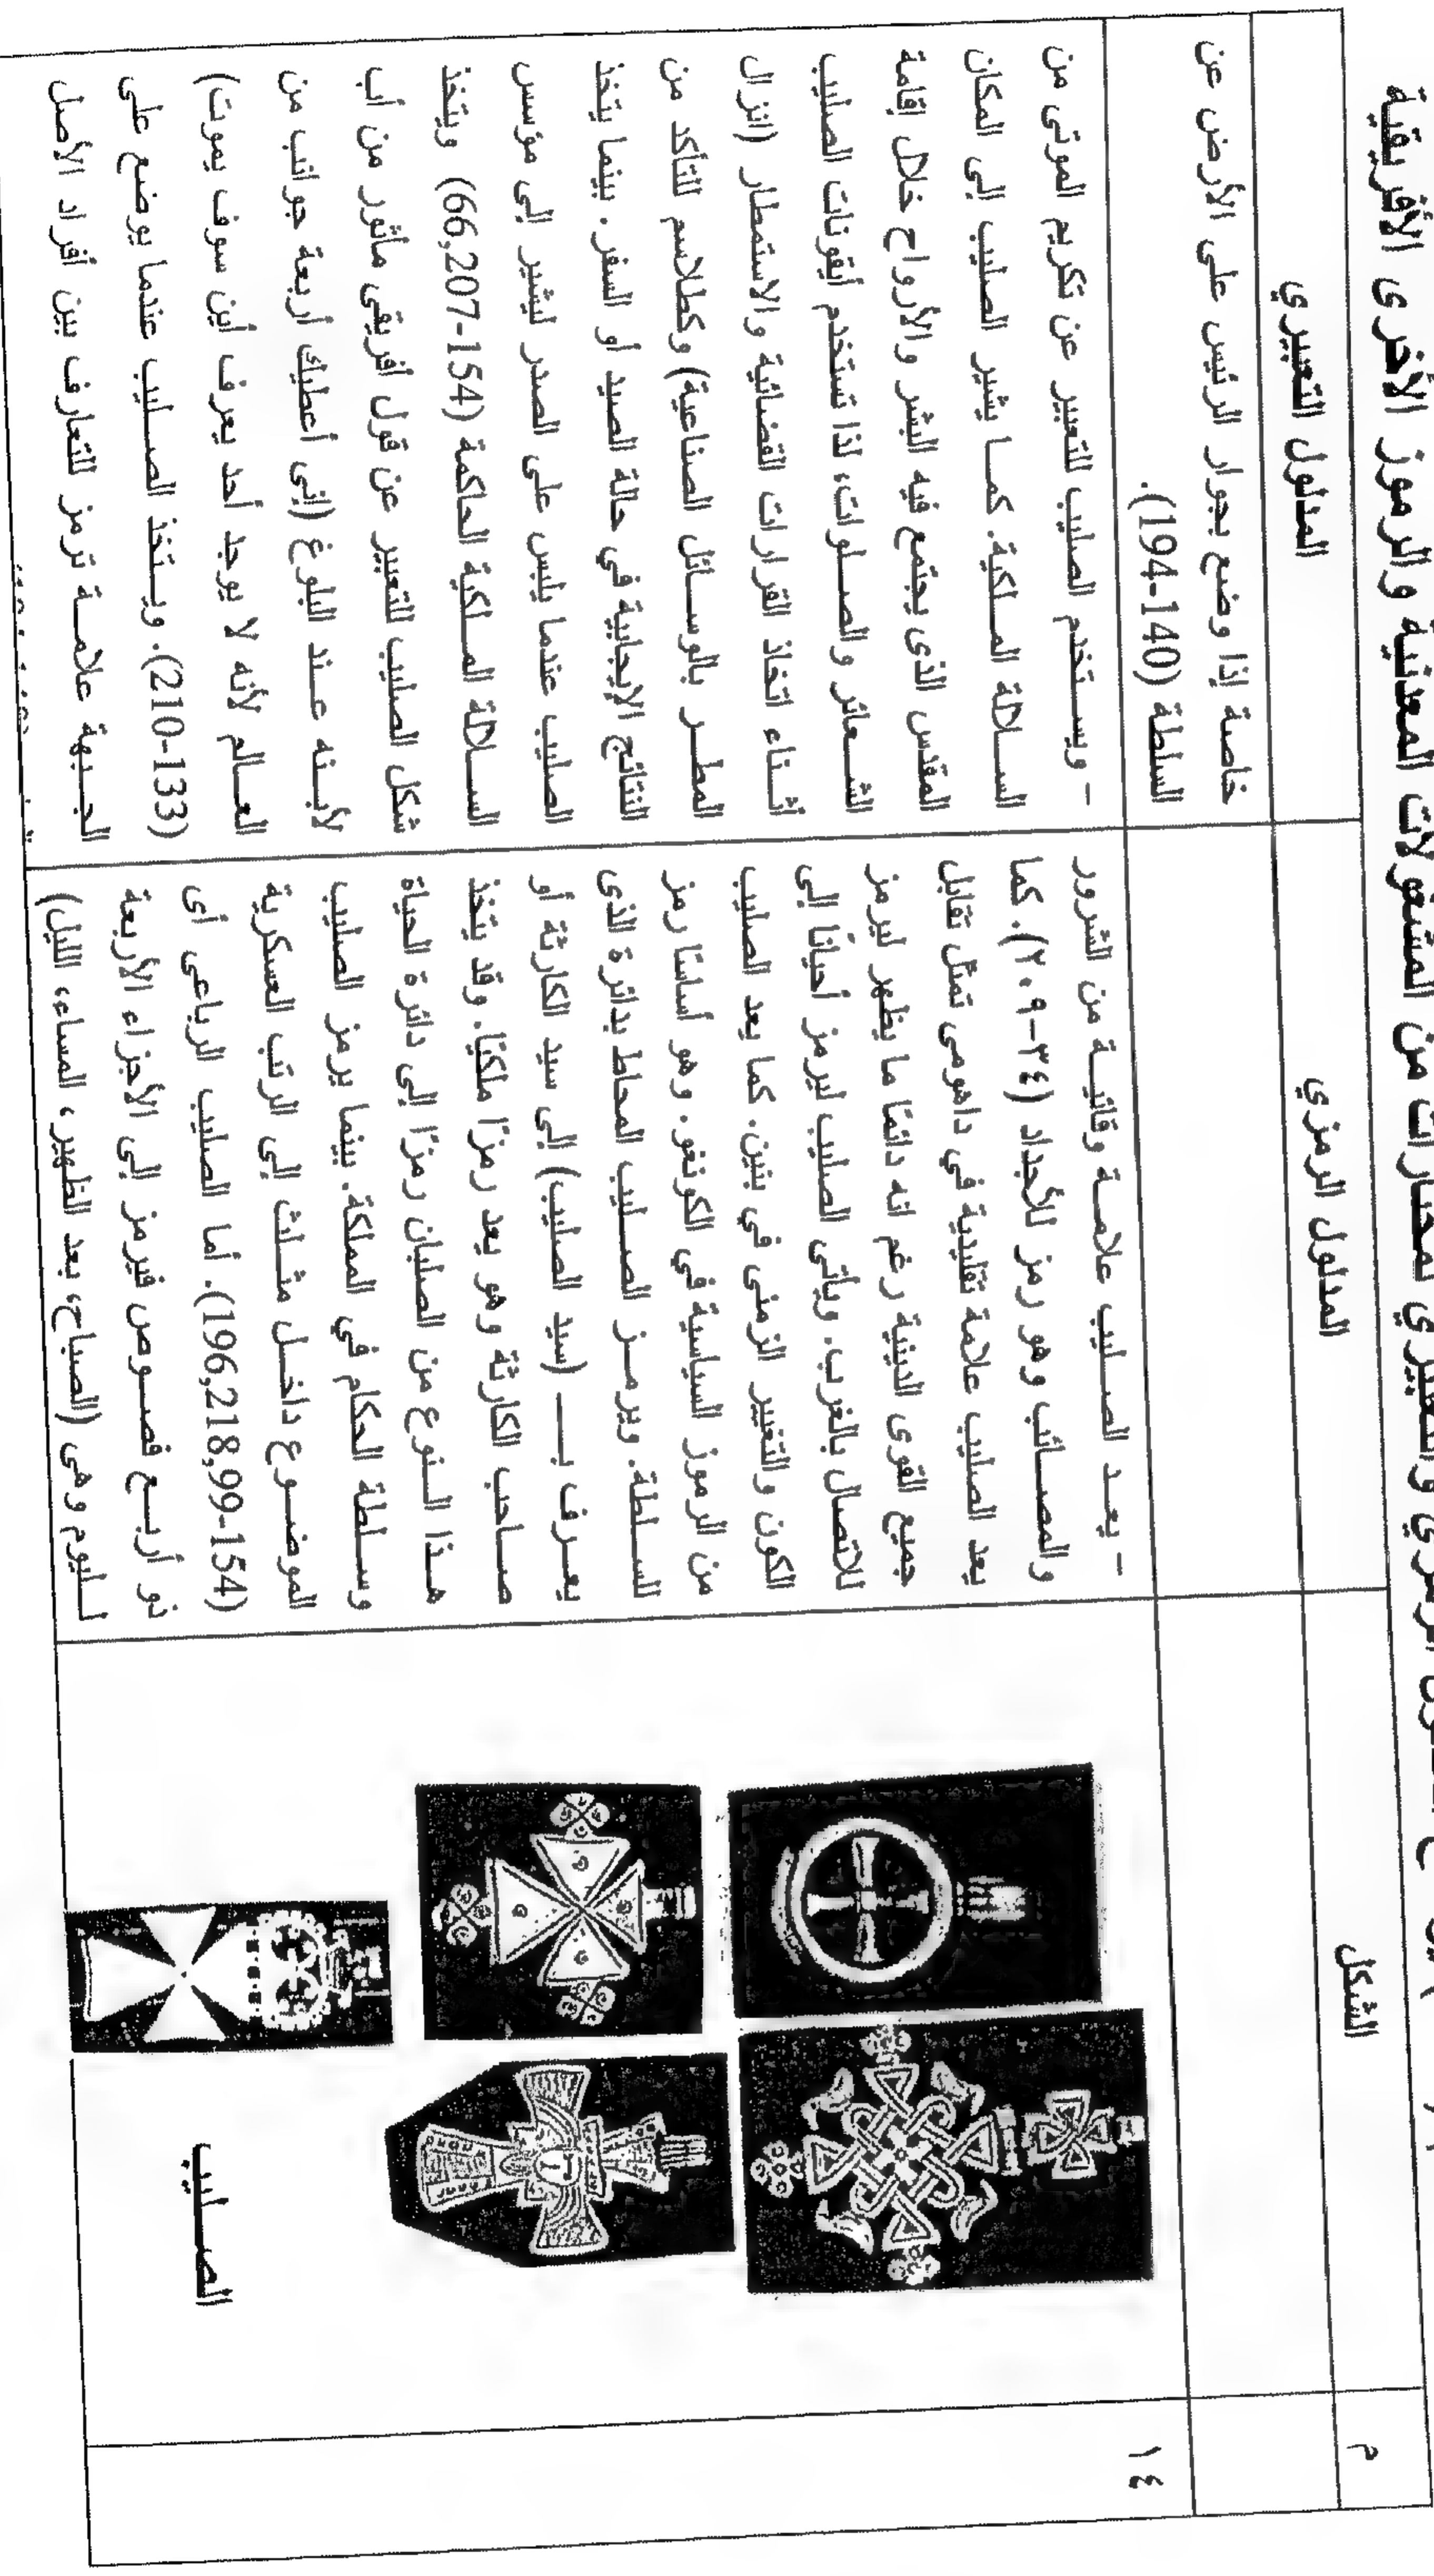 المدلول الرمزي والتعبيري لمختارات من المشغولات المعدنية والرموز الأخرى الأفريقية
م
الشكل
المدلول الرمزي
المدلول التعبيري
خاصة إذا وضع بجوار الرئيس على الأرض عن
السلطة (140-194).
١٤
الصـليب
- يعـد الصـليب علامـة وقائيـة من الشرور
والمصـائب وهو رمز للأجداد (٣٤-٢٠٩). كما
يعد الصليب علامة تقليدية في داهومى تمثل تقابل
جميع القوى الدينية رغم انه دائمًا ما يظهر ليرمز
للاتصال بالغرب. ويأتى الصليب ليرمز أحيانًا إلى
الكون والتغيير الزمنى في بنين. كما يعد الصليب
من الرموز السياسية في الكونغو. وهو أساسًا رمز
للسـلطة. ويرمـز الصـليب المحاط بدائرة الذى
يعـرف بـــ (سيد الصليب) إلى سيد الكارثة أو
صـاحب الكارثة وهو يعد رمزًا ملكيًا. وقد يتخذ
هـذا الـنوع من الصلبان رمزًا إلى دائرة الحياة
وسـلطة الحكام في المملكة. بينما يرمز الصليب
الموضـوع داخـل مثـلث إلى الرتب العسكرية
(196,218,99-154). أما الصليب الرباعى أى
ذو أربـع فصـوص فيرمز إلى الأجزاء الأربعة
لـليوم وهى (الصباح، بعد الظهير، المساء، الليل)
- ويسـتخدم الصليب للتعبير عن تكريم الموتى من
السـلالة المـلكية. كمـا يشير الصليب إلى المكان
المقدس الذى يجتمع فيه البشر والأرواح خلال إقامة
الشـعائر والصـلوات، لذا تستخدم أيقونات الصليب
أثـناء اتخاذ القرارات القضائية والاستمطار (انزال
المطـر بالوسـائل الصناعية) وكطلاسم للتأكد من
النتائج الإيجابية في حالة الصيد أو السفر. بينما يتخذ
الصليب عندما يلبس على الصدر ليشير إلى مؤسس
السـلالة المـلكية الحاكمة (66,207-154) ويتخذ
شكل الصليب للتعبير عن قول أفريقى مأثور من أب
لأبـنه عـند البلوغ (إنى أعطيك أربعة جوانب من
العـالم لأنه لا يوجد أحد يعرف أين سوف يموت)
(133-210). ويـتخذ الصـليب عندما يوضع على
الجـبهة علامـة ترمز للتعارف بين أفراد الأصل